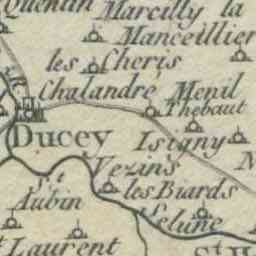 Quentin Marcilly la
Manceillier
les Cheris
Chalandré Menil
Thebaut
Ducey Isigny
Vezins
St les Biards
Aubin
Selune
Laurent St H